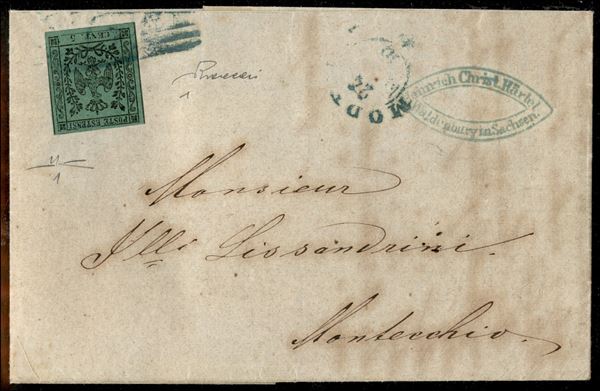 CENT. 5
POSTE ESTENSI
MODE
22
Heinrich Christ. Härtel
Waldenburg in Sachsen.
Monsieur
Flli Lissandrini.
Montecchio.